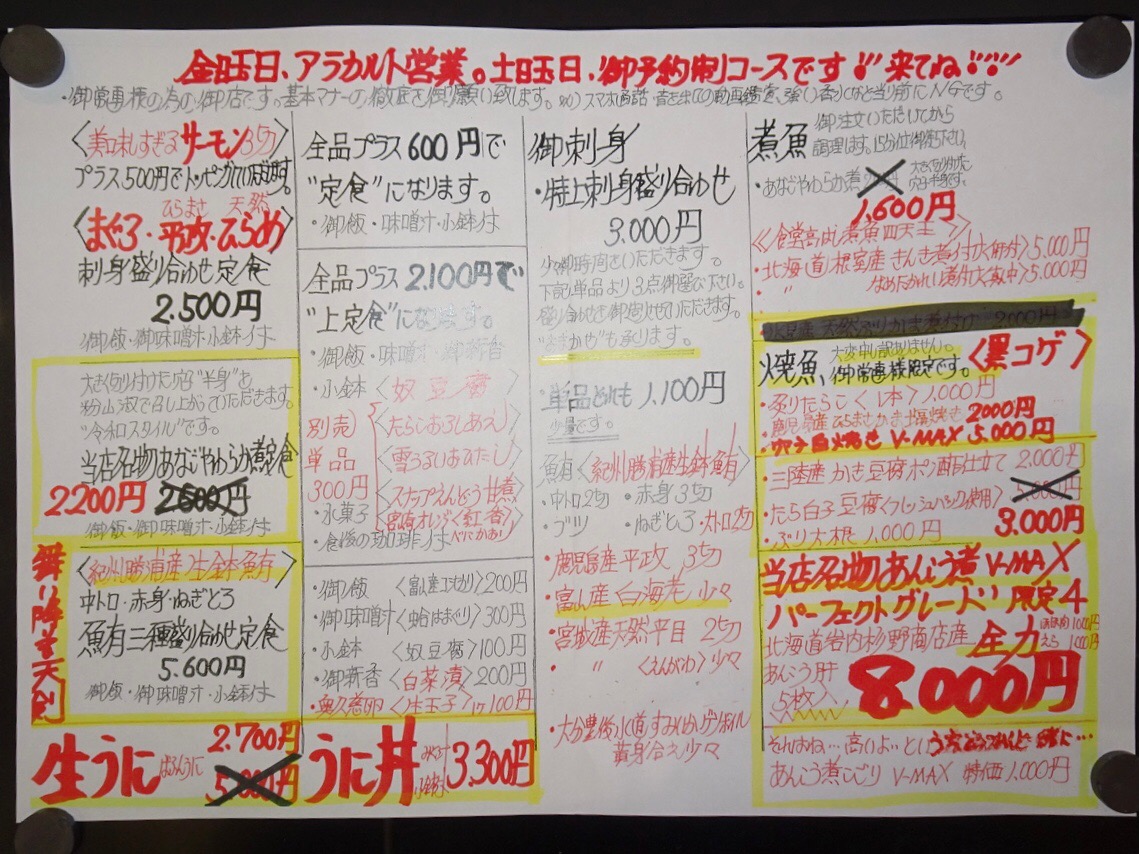 金曜日、アラカルト営業。土曜日、御予約制コースです!!来てね!!!!
・御常連様の為の御店です。基本マナーの徹底を御願い致します。 スマホ通話・音を出しての動画鑑賞、強い香水など当り前にNGです。
〈美味しすぎるサーモン3切〉
プラス500円でトッピングていただけます。
ひらまさ 天然
〈まぐろ・平政・ひらめ〉
刺身盛り合わせ定食
2.500円
御飯・御味噌汁・小鉢付
大きく切り付けた穴子“半身”を
粉山椒で召し上がっていただきます。
“令和スタイル”です。
当店名物あなごやわらか煮定食
2200円 2600円
御飯・御味噌汁・小鉢付
舞い降り
〈紀州勝浦産生本鮪〉
中トロ・赤身・ねぎとろ
鮪三種盛り合わせ定食
5.600円
御飯・御味噌汁・小鉢付
生うに
2.700円
全品プラス600円で
“定食”になります。
・御飯・味噌汁・小鉢付
全品プラス2.100円で
“上定食”になります。
・御飯・味噌汁・御新香
・小鉢〈奴豆腐〉
別売)
単品
300円
〈たらこおろしあえ〉
〈雪うるいおひたし〉
〈スナップえんどう甘煮〉
・水菓子〈宮崎オレンジ〈紅香〉〉
・食後の珈琲付
・御飯〈富山産コシヒカリ〉200円
・御味噌汁〈蛤はまぐり〉300円
・小鉢〈奴豆腐〉100円
・御新香〈白菜漬〉200円
・奥久慈卵〈生玉子〉1ケ100円
うに丼
3.300円
御刺身
・特上刺身盛り合わせ
3.000円
少々御時間をいただきます。
下記単品より3点御選び下さい。
盛り合わせを御用意させていただきます。
“おまかせ”も承ります。
単品どれも1.100円
少量です。
鮪〈紀州勝浦産生本鮪〉
・中トロ2切 ・赤身3切
・ブツ ・ねぎとろ・大トロ2切
・鹿児島産平政 3切
・富山産白海老 少々
・宮城産天然平目 2切
・ 〃 〈えんがわ〉少々
・大分豊後水道
黄身合え少々
煮魚
御注文いただいてから
調理します。15分位御待ち下さい。
・あなごやわらか煮
大きく切り付けた
穴子半身です。
1,600円
〈〈食堂高はし煮魚四天王〉〉
・北海道根室産きんき煮付〈大根付〉5.000円
・ 〃 なめたかれい煮付〈大根付〉5.000円
焼魚、
大変申し訳ありません。
御常連様限定です。
〈黒コゲ〉
・炙りたらこ〈1本〉1,000円
・鹿児島産ひらまさかま塩焼き 2000円
V-MAX 3.000円
・三陸産かき豆腐ポン酢仕立て 2.000円
・たら白子豆腐〈フレッシュパック使用〉
3.000円
・ぶり大根 1,000円
当店名物あんこう煮V-MAX
パーフェクトグレード!! 限定4
北海道岩内杉野商店産
全力
あんこう肝
5枚〉
8.000円
それはね…高いよ…という
あんこう煮こごり V-MAX 特価1,000円